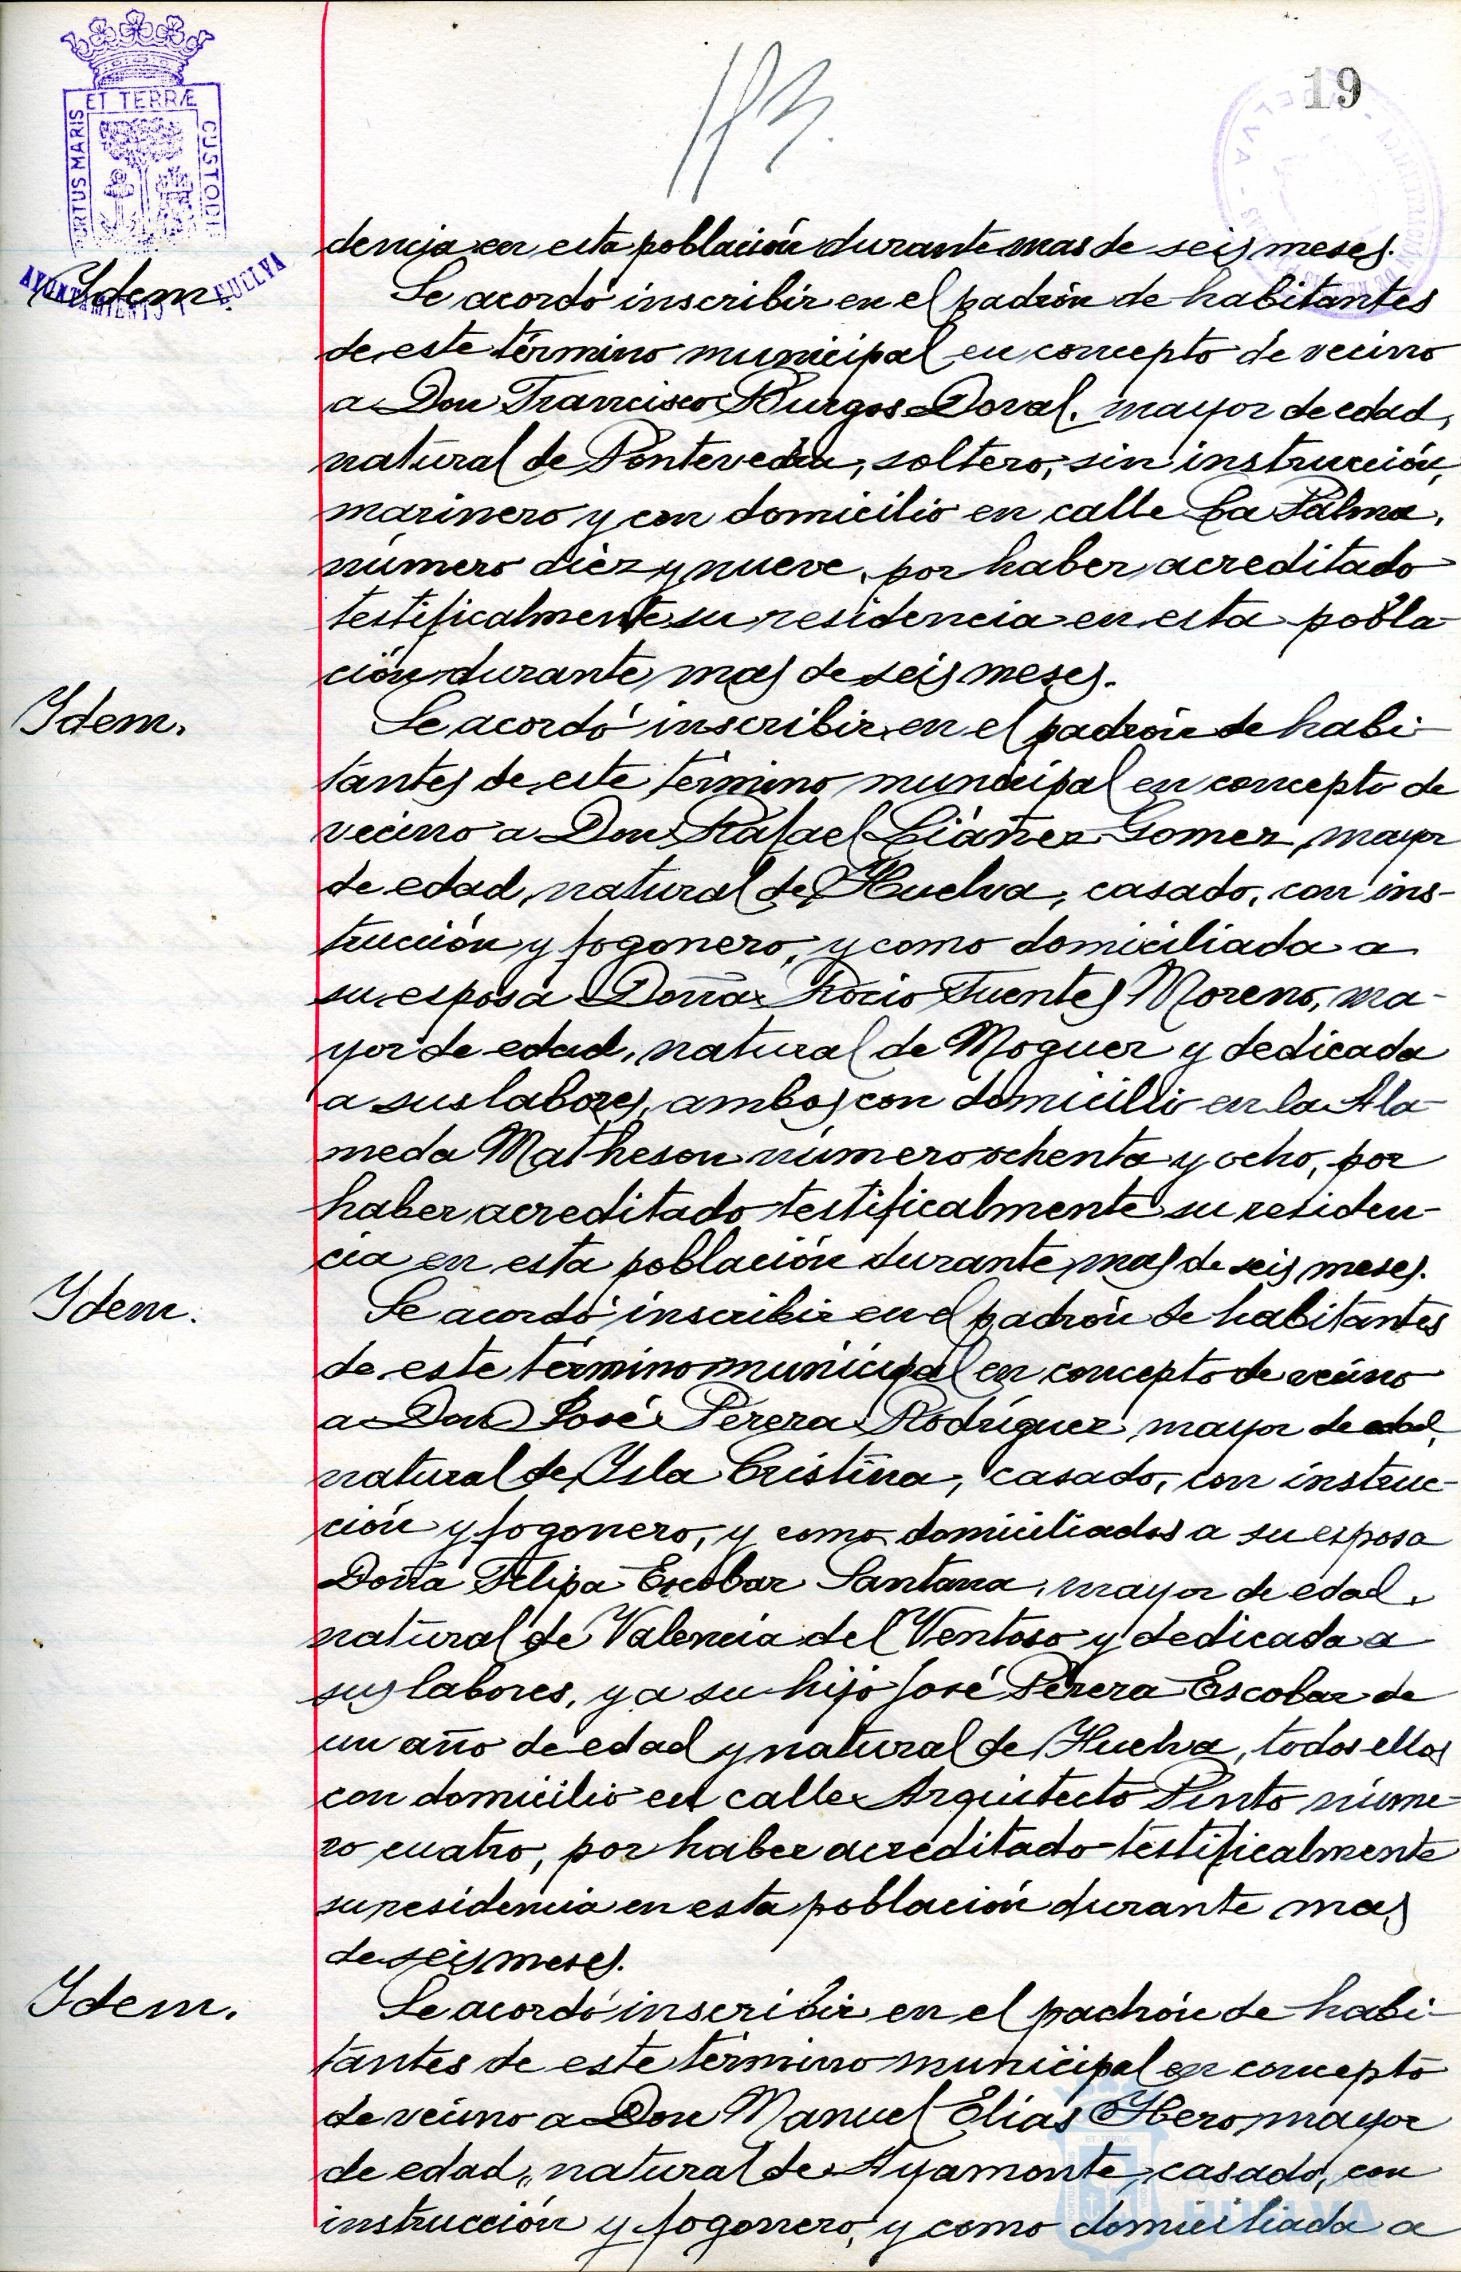 19
113.
ET TERRÆ
PORTUS MARIS
CUSTODI
AYUNTAMIENTO HUELVA
dencia en esta población durante mas de seis meses.
Idem.
Se acordó inscribir en el padrón de habitantes
de este término municipal en concepto de vecino
a Don Francisco Burgos Doval, mayor de edad,
natural de Pontevedra, soltero, sin instrucción,
marinero y con domicilio en calle La Palma,
número diez y nueve, por haber acreditado
testificalmente su residencia en esta pobla
ción durante mas de seis meses.
Idem.
Se acordó inscribir en el padrón de habi-
tantes de este término municipal en concepto de
vecino a Don Rafael Liáñez Gomez, mayor
de edad, natural de Huelva, casado, con ins-
trucción y fogonero, y como domiciliada a
su esposa Doña Rocio Fuentes Moreno, ma-
yor de edad, natural de Moguer y dedicada
a sus labores, ambos con domicilio en la Ala-
meda Matheson número ochenta y ocho, por
haber acreditado testificalmente su residen-
cia en esta población durante mas de seis meses.
Idem.
Se acordó inscribir en el padrón de habitantes
de este término municipal en concepto de vecino
a Don José Perera Rodríguez mayor de edad,
natural de Isla Cristina, casado, con instruc-
ción y fogonero, y como domiciliados a su esposa
Doña Felipa Escobar Santana, mayor de edad,
natural de Valencia del Ventoso y dedicada a
sus labores, y a su hijo José Perera Escobar de
un año de edad y natural de Huelva, todos ellos
con domicilio en calle Arquitecto Pinto núme-
ro cuatro, por haber acreditado testificalmente
su residencia en esta población durante mas
de seis meses.
Idem.
Se acordó inscribir en el padrón de habi-
tantes de este término municipal en concepto
de vecino a Don Manuel Elías Ybero, mayor
de edad, natural de Ayamonte, casado, con
instrucción y fogonero, y como domiciliada a
Ayuntamiento de
HUELVA